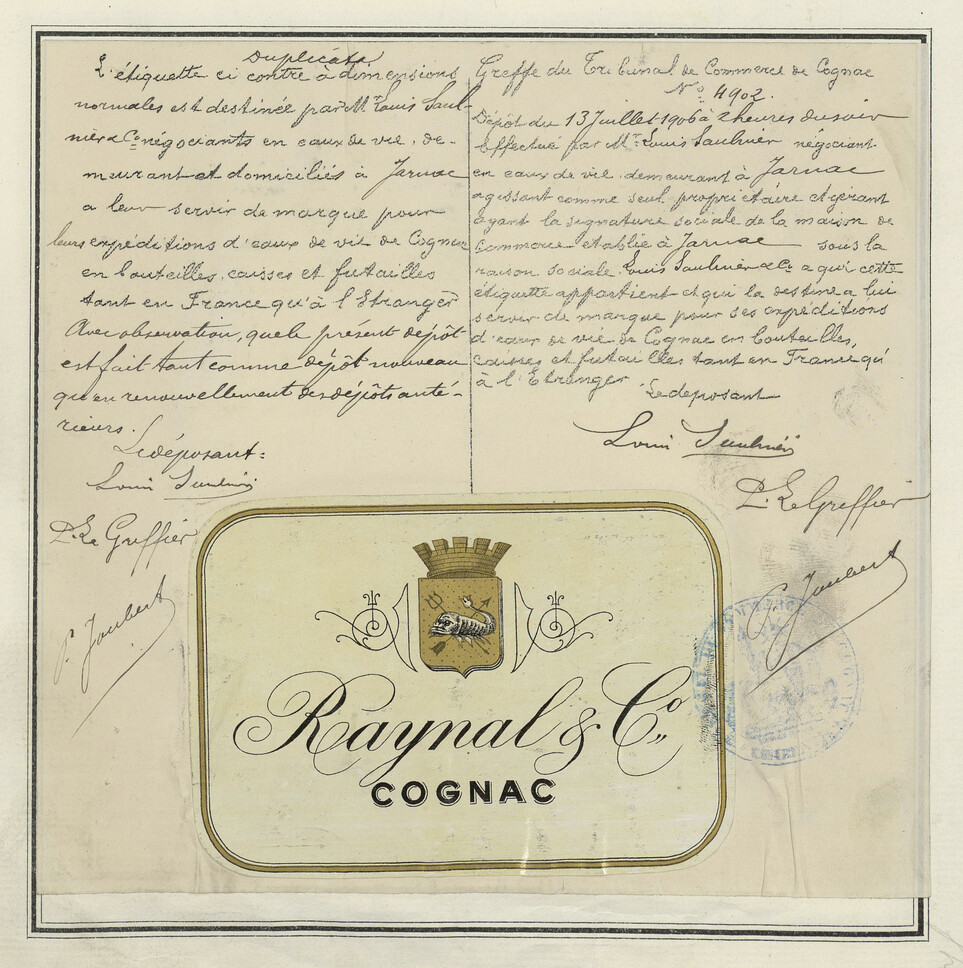 Duplicata
L'étiquette ci contre à dimensions
normales est destinée par Mr Louis Saul-
nier & Co négociants en eaux de vie, de-
meurant et domiciliés à Jarnac
a leur servir de marque pour
leurs expéditions d'eaux de vie de Cognac
en bouteilles, caisses et futailles
tant en France qu'à l'Etranger
Avec observation, que le présent dépôt
est fait tant comme dépôt nouveau
qu'en renouvellement des dépôts anté-
rieurs.
Le déposant:
Louis Saulnier
P. Le Greffier
P. Joubert
Greffe du Tribunal de Commerce de Cognac
No 4902.
Dépôt du 13 Juillet 1906 à 2 heures du soir
Effectué par Mr Louis Saulnier négociant
en eaux de vie demeurant à Jarnac
agissant comme seul propriétaire et gérant
ayant la signature sociale de la maison de
Commerce etablie à Jarnac sous la
raison sociale Louis Saulnier & Co a qui cette
étiquette appartient et qui la destine a lui
servir de marque pour ses expéditions
d'eaux de vie de Cognac en bouteilles,
caisses et futailles tant en France qu'
à l'Etranger
Le deposant
Louis Saulnier
P. Le Greffier
P. Joubert
Raynal & Co
COGNAC